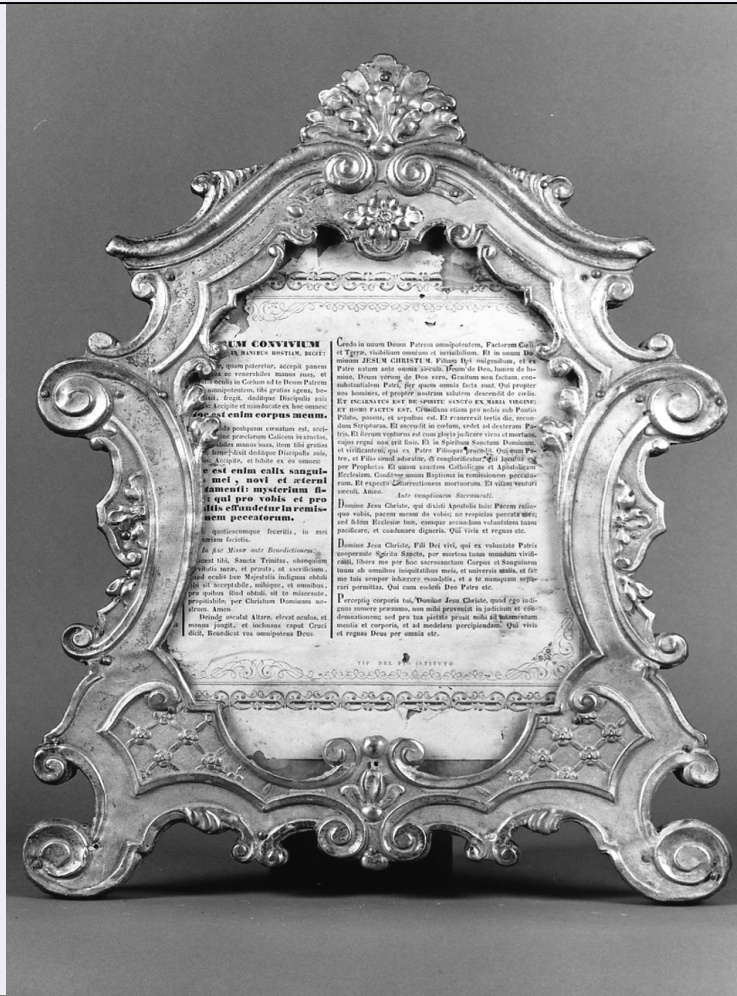 RUM CONVIVIUM
IN MANIBUS HOSTIAM, DICIT:
quam pateretur, accepit panem
ac venerabiles manus suas, et
oculis in Cœlum ad te Deum Patrem
omnipotentem, tibi gratias agens, be-
dixit, fregit, deditque Discipulis suis
Accipite et manducate ex hoc omnes:
oc est enim corpus meum.
postquam cœnatum est, acci-
præclarum Calicem in sanctas,
biles manus suas, item tibi gratias
deditque Discipulis suis,
Accipite, et bibite ex eo omnes:
e est enim calix sangui-
mei, novi et æterni
tamenti: mysterium fi-
qui pro vobis et pro
ltis effundetur in remis-
nem peccatorum.
quotiescumque feceritis, in mei
facietis.
In fine Missæ ante Benedictionem.
ceat tibi, Sancta Trinitas, obsequium
vitutis meæ, et præsta, ut sacrificium,
od oculis tuæ Majestatis indignus obtuli
bi sit acceptabile, mihique, et omnibus,
pro quibus illud obtuli, sit te miserante,
propitiabile; per Christum Dominum no-
strum. Amen
Deinde osculat Altare, elevat oculos, et
manus jungit, et inclinans caput Cruci
dicit, Benedicat vos omnipotens Deus
Credo in unum Deum Patrem omnipotentem, Factorem Cœli
et Terræ, visibilium omnium et invisibilium. Et in unum Do-
minum JESUM CHRISTUM, Filium Dei unigenitum, et ex
Patre natum ante omnia sæcula. Deum de Deo, lumen de lu-
mine, Deum verum de Deo vero, Genitum non factum, con-
substantialem Patri, per quem omnia facta sunt. Qui propter
nos homines, et propter nostram salutem descendit de cœlis.
ET INCARNATUS EST DE SPIRITU SANCTO EX MARIA VIRGINE;
ET HOMO FACTUS EST. Crucifixus etiam pro nobis sub Pontio
Pilato, passus, et sepultus est. Et resurrexit tertia die, secun-
dum Scripturas. Et ascendit in cœlum, sedet ad dexteram Pa-
tris. Et iterum venturus est cum gloria judicare vivos et mortuos,
cujus regni non erit finis. Et in Spiritum Sanctum Dominum,
et vivificantem, qui ex Patre Filioque procedit. Qui cum Pa-
tre, et Filio simul adoratur, et conglorificatur, qui locutus est
per Prophetas. Et unam sanctam Catholicam et Apostolicam
Ecclesiam. Confiteor unum Baptisma in remissionem peccato-
rum. Et expecto resurrectionem mortuorum. Et vitam venturi
sæculi. Amen.
Ante sumptionem Sacramenti.
Domine Jesu Christe, qui dixisti Apostolis tuis: Pacem relin-
quo vobis, pacem meam do vobis; ne respicias peccata mea;
sed fidem Ecclesiæ tuæ, eamque secundum voluntatem tuam
pacificare, et coadunare digneris. Qui vivis et regnas etc.
Domine Jesu Christe, Fili Dei vivi, qui ex voluntate Patris
cooperante Spiritu Sancto, per mortem tuam mundum vivifi-
casti, libera me per hoc sacrosanctum Corpus et Sanguinem
tuum ab omnibus iniquitatibus meis, et universis malis, et fac
me tuis semper inhærere mandatis, et a te nunquam sepa-
rari permittas. Qui cum eodem Deo Patre etc.
Perceptio corporis tui, Domine Jesu Christe, quod ego indi-
gnus sumere præsumo, non mihi proveniat in judicium et con-
demnationem; sed pro tua pietate prosit mihi ad tutamentum
mentis et corporis, et ad medelam percipiendam. Qui vivis
et regnas Deus per omnia etc.
TIP. DEL PIO ISTITUTO